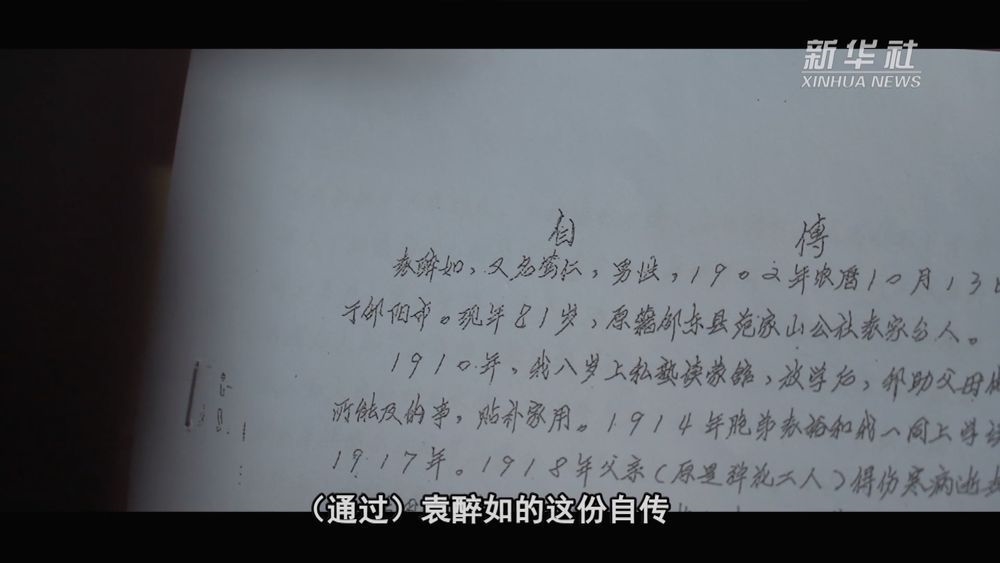 新华社
XINHUA NEWS
自 传
袁醉如，又名蓥仁，男性，1902年农历10月13日
于邵阳市。现年81岁，原籍邵东县范家山公社袁家台人。
1910年，我八岁上私塾读蒙馆，放学后，帮助父母做
所能及的事，贴补家用。1914年胞弟袁裕和我一同上学读
1917年。1918年父亲（原是弹花工人）得伤寒病逝
（通过）袁醉如的这份自传